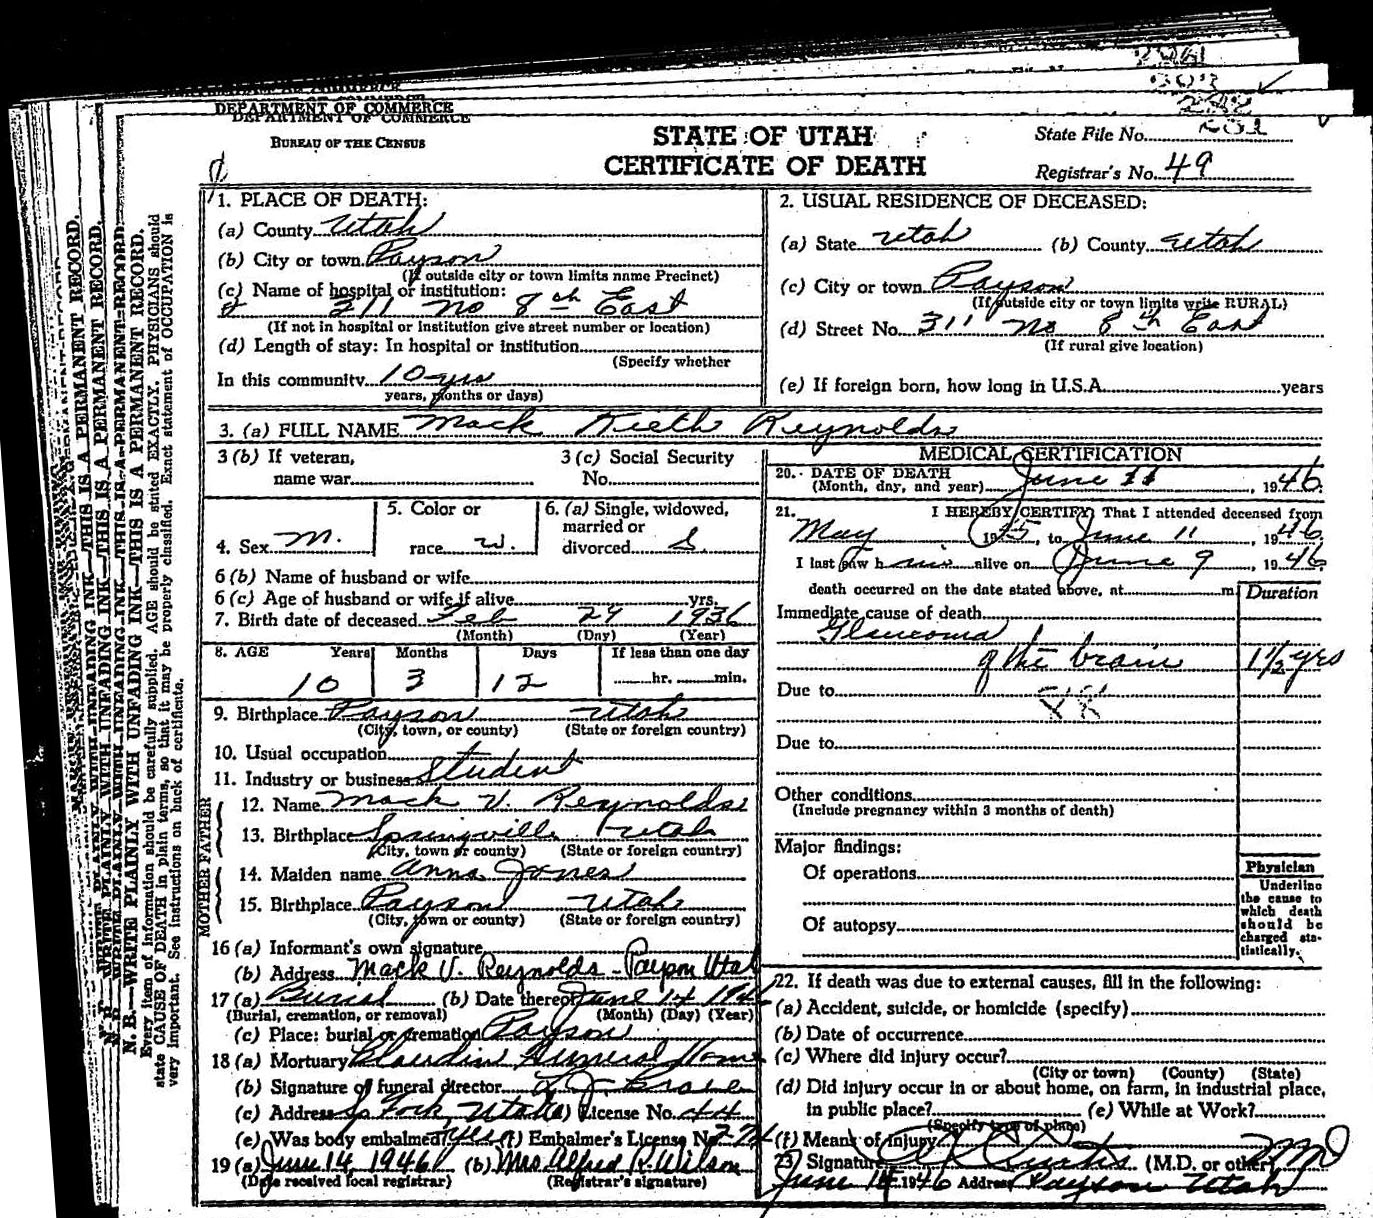 DEPARTMENT OF COMMERCE
BUREAU OF THE CENSUS
STATE OF UTAH
CERTIFICATE OF DEATH
State File No.
Registrar's No. 49
1. PLACE OF DEATH:
(a) County Utah
(b) City or town Payson
(If outside city or town limits name Precinct)
(c) Name of hospital or institution:
311 No 8th East
(If not in hospital or institution give street number or location)
(d) Length of stay: In hospital or institution
(Specify whether
In this community 10 yrs
years, months or days)
2. USUAL RESIDENCE OF DECEASED:
(a) State Utah (b) County Utah
(c) City or town Payson
(If outside city or town limits write RURAL)
(d) Street No. 311 No 8th East
(If rural give location)
(e) If foreign born, how long in U.S.A. years
3. (a) FULL NAME Mack Kieth Reynolds
3 (b) If veteran, name war
3 (c) Social Security No.
4. Sex M.
5. Color or race W.
6. (a) Single, widowed, married or divorced S.
6 (b) Name of husband or wife
6 (c) Age of husband or wife if alive yrs.
7. Birth date of deceased Feb 29 1936
(Month) (Day) (Year)
8. AGE Years Months Days If less than one day
10 3 12 hr. min.
9. Birthplace Payson Utah
(City, town, or county) (State or foreign country)
10. Usual occupation
11. Industry or business Student
FATHER
12. Name Mack V. Reynolds
13. Birthplace Springville Utah
(City, town or county) (State or foreign country)
MOTHER
14. Maiden name Anna Jones
15. Birthplace Payson Utah
(City, town or county) (State or foreign country)
16 (a) Informant's own signature
(b) Address Mack V. Reynolds - Payson Utah
17 (a) Burial (b) Date thereof June 14 1946
(Burial, cremation, or removal) (Month) (Day) (Year)
(c) Place: burial or cremation Payson
18 (a) Mortuary Claudin Funeral Home
(b) Signature of funeral director
(c) Address Sp Fork Utah (d) License No. 44
(e) Was body embalmed? yes (f) Embalmer's License No.
19 (a) June 14, 1946 (b) Mrs Alfred R. Wilson
(Date received local registrar) (Registrar's signature)
MEDICAL CERTIFICATION
20. DATE OF DEATH
(Month, day, and year) June 11, 1946.
21. I HEREBY CERTIFY, That I attended deceased from
May 1945, to June 11, 1946.
I last saw him alive on June 9, 1946,
death occurred on the date stated above, at m.
Duration
Immediate cause of death
Glaucoma
of the brain 1 1/2 yrs
Due to
Due to
Other conditions
(Include pregnancy within 3 months of death)
Major findings:
Of operations
Of autopsy
Physician
Underline the cause to which death should be charged statistically.
22. If death was due to external causes, fill in the following:
(a) Accident, suicide, or homicide (specify)
(b) Date of occurrence
(c) Where did injury occur?
(City or town) (County) (State)
(d) Did injury occur in or about home, on farm, in industrial place,
in public place? (e) While at Work?
(Specify type of place)
(f) Means of injury
23. Signature Curtis (M.D. or other) MD
June 1946 Address Payson Utah
N. B.—WRITE PLAINLY WITH UNFADING INK—THIS IS A PERMANENT RECORD.
Every item of information should be carefully supplied. AGE should be stated EXACTLY. PHYSICIANS should
state CAUSE OF DEATH in plain terms, so that it may be properly classified. Exact statement of OCCUPATION is
very important. See instructions on back of certificate.